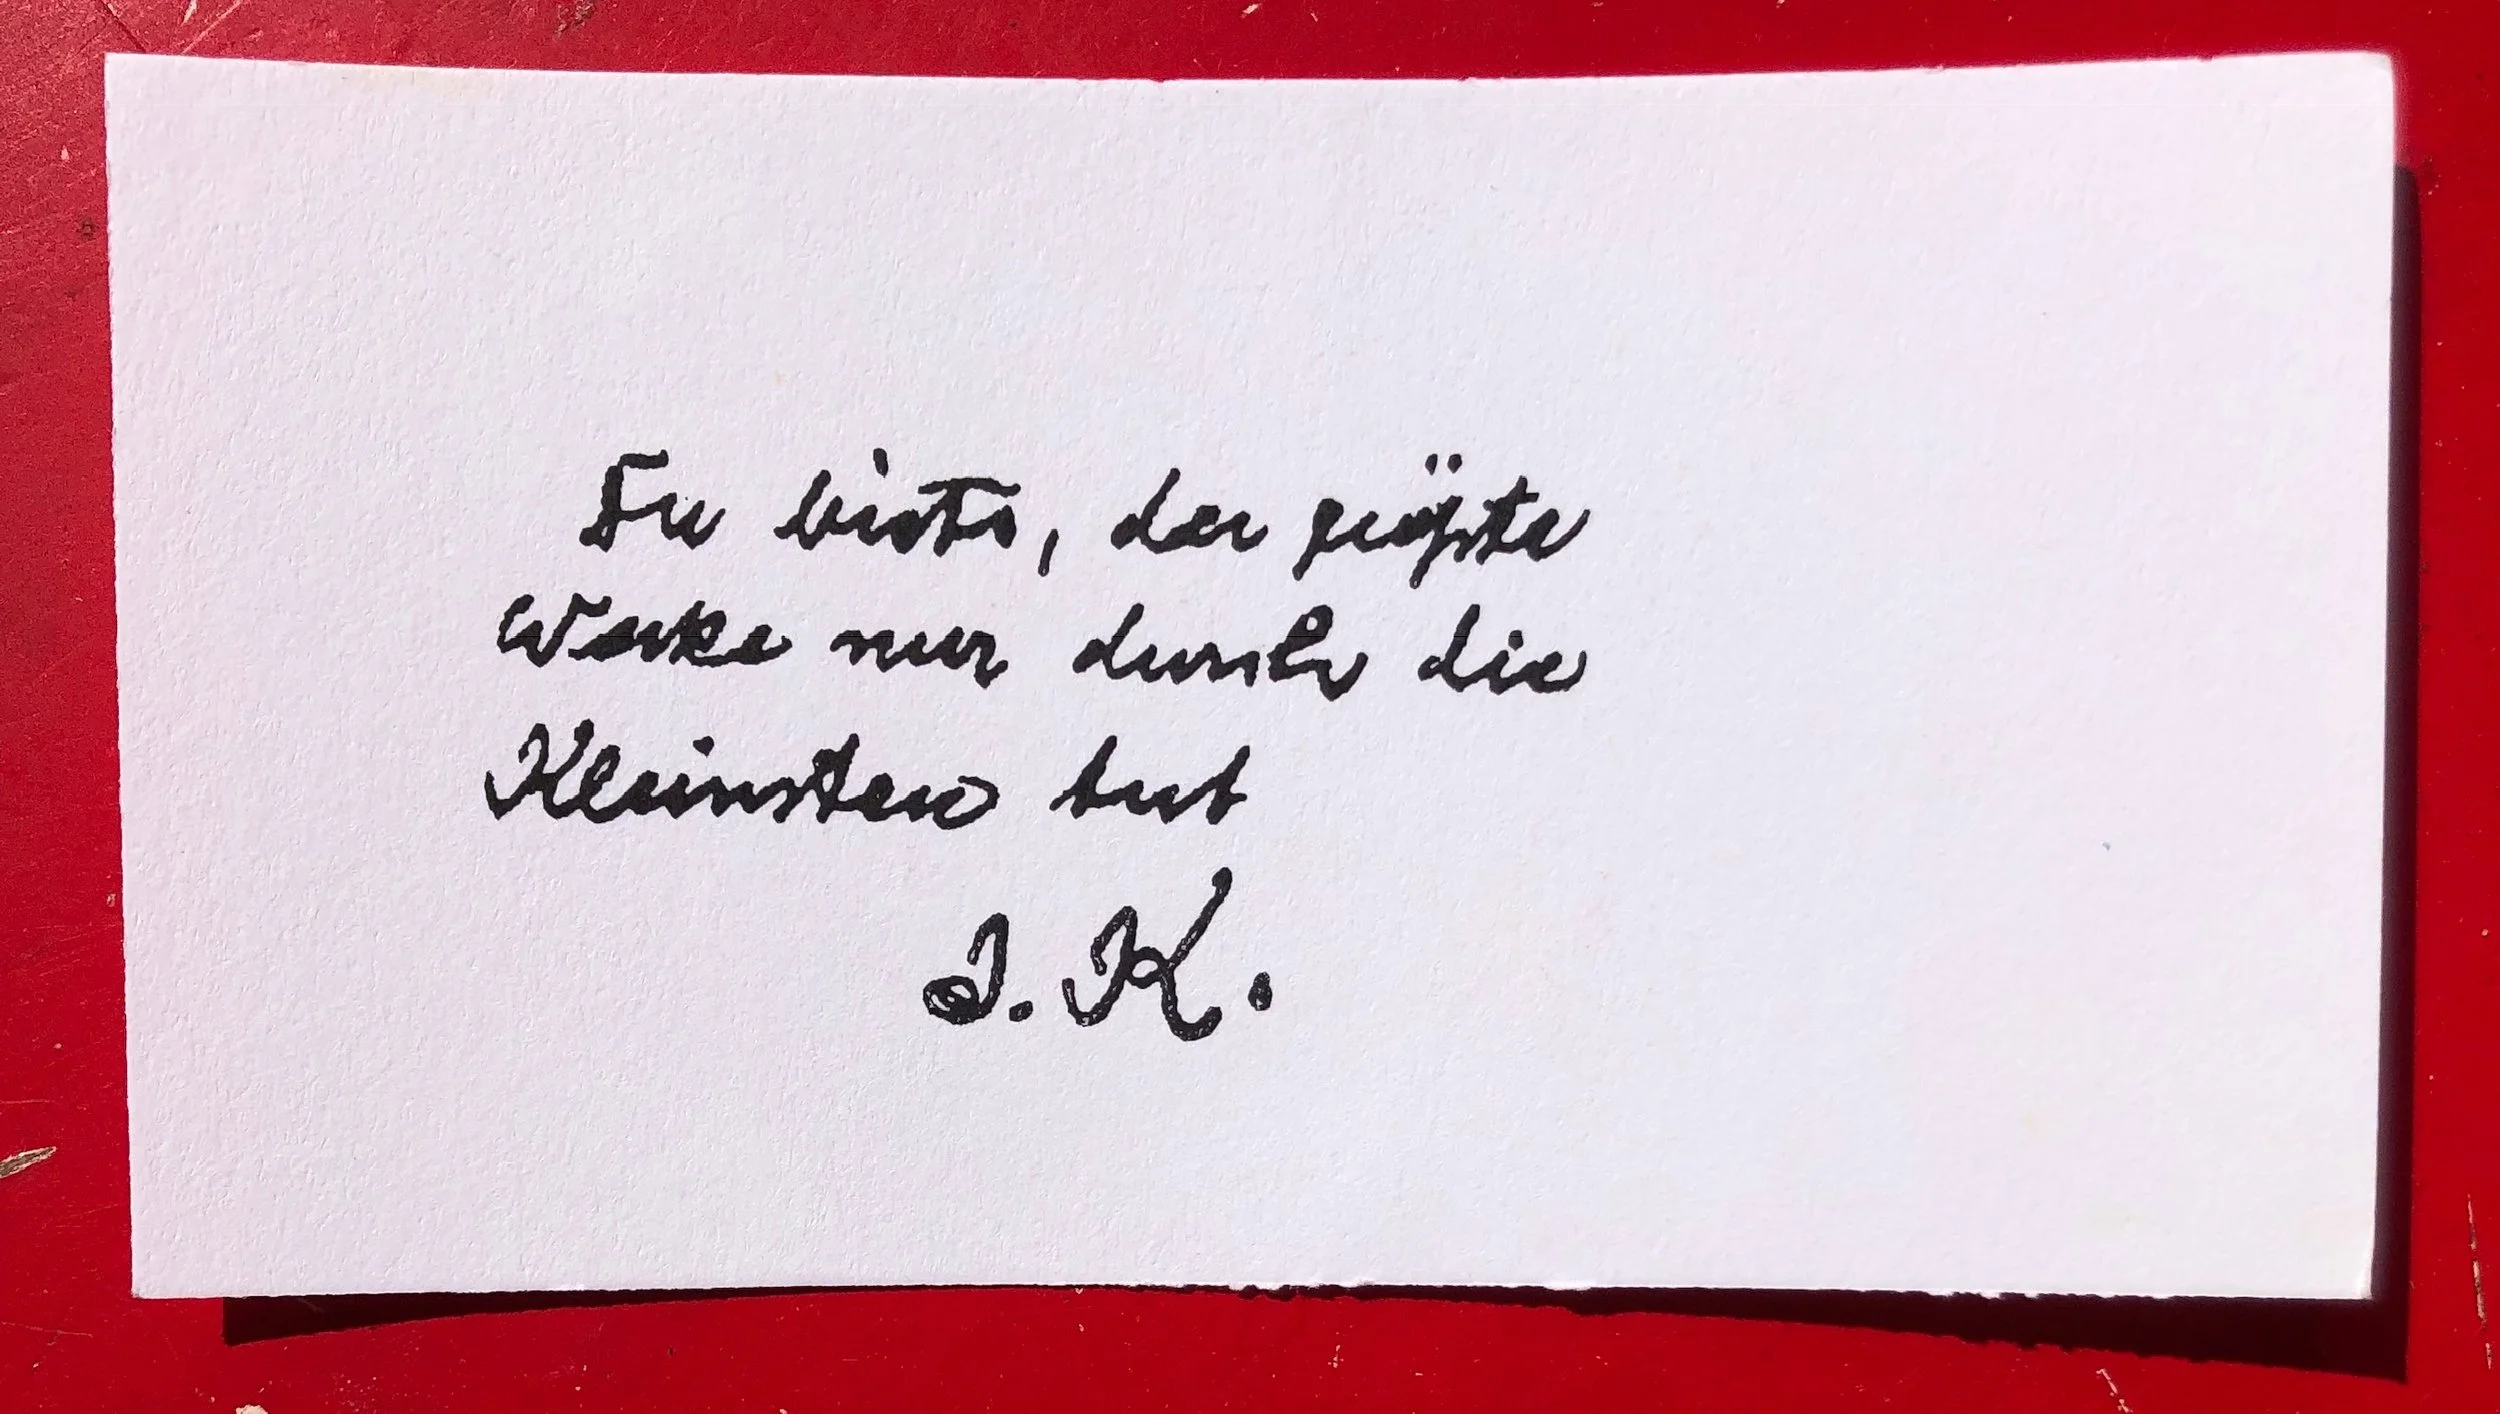 Du bists, der größte
Werke nur durch die
Kleinsten tut
J. K.